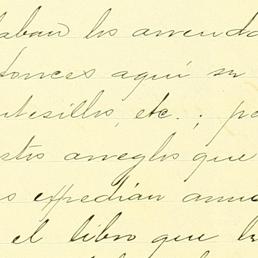 taban los arrenda
tonces aquí su
utesillos, etc.; po
stos arreglos que
s expedían anu
el libro que la